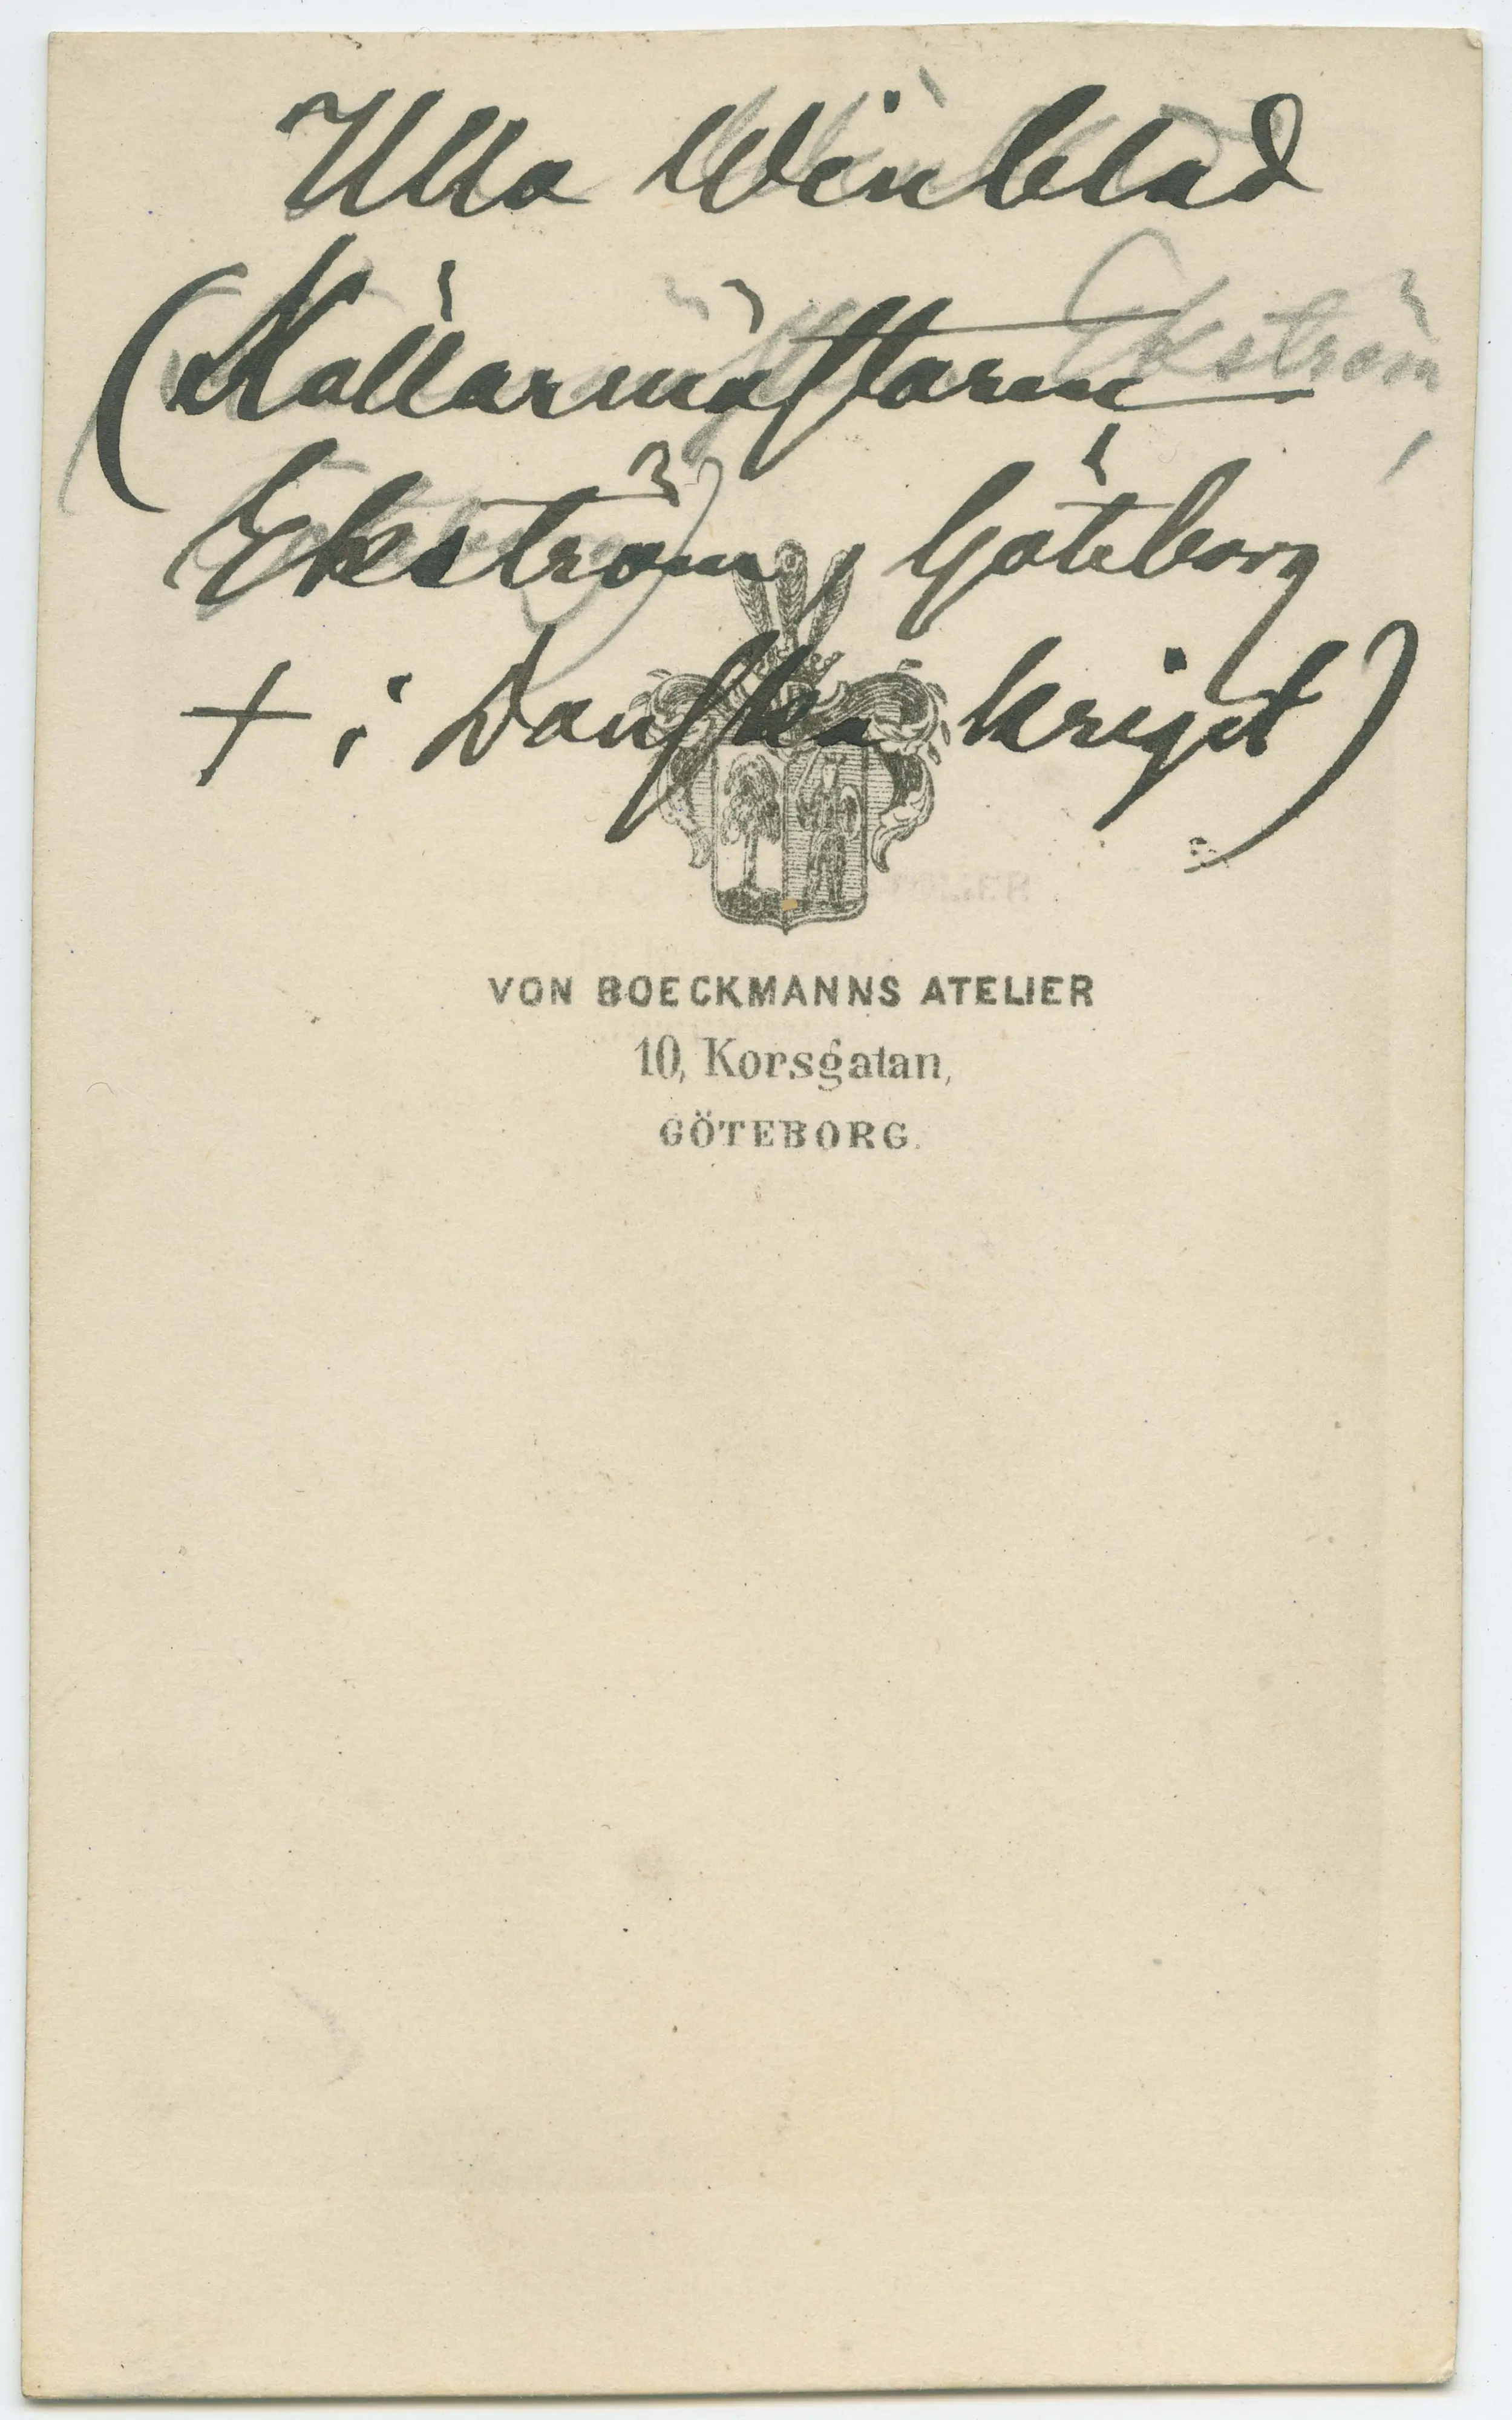 Ulla Winblad
(Källarmästaren
Ekström, Göteborg
† i Danska kriget)
Ekström,
VON BOECKMANNS ATELIER
10, Korsgatan,
GÖTEBORG.